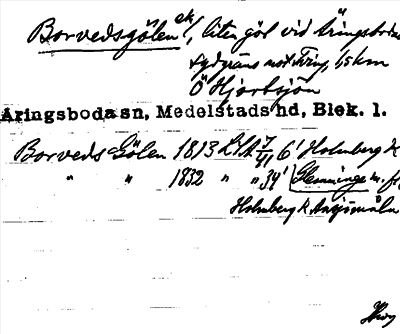 Borvedsgölen ek!, liten göl vid Åringsboda
sydgräns mot Tving, 1,5 km
Ö Hjortsjön
Åringsboda sn, Medelstads hd, Blek. l.
Borveds Gölen 1813 LSA 7/41 6' Holmberg k
" " 1832 " " 34' Flemminge m. fl.
Holmberg k